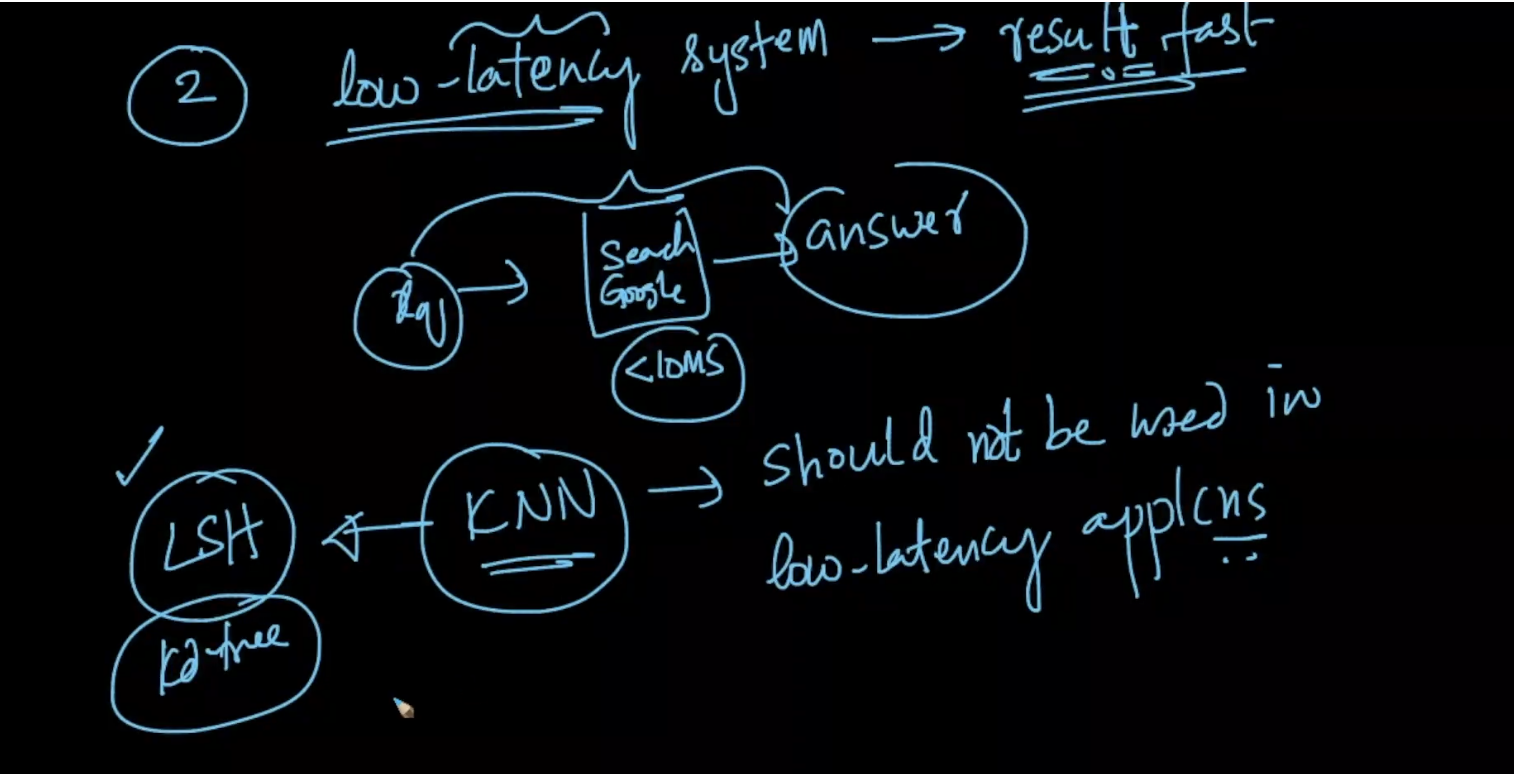 2 low-latency system → result fast
Search
Google
answer
<10ms
KNN → should not be used in
low-latency applcns
LSH
kd-tree